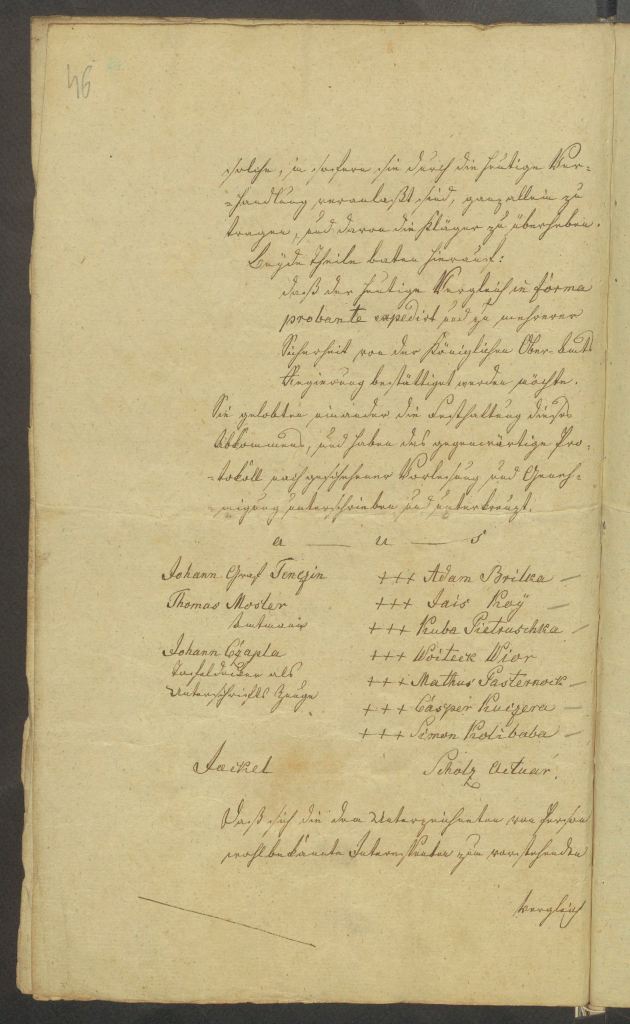 46
solche, in sofern sie durch die heutige Ver-
-handlung veranlaßt sind, ganz allein zu
tragen, und davon die Kläger zu überheben.
Beyde Theile baten hierauf:
daß der heutige Vergleich in forma
probante expedirt und zu mehrerer
Sicherheit von der Königlichen Ober-Amts
Regierung bestättiget werden möchte.
Sie gelobten einander die Festhaltung dieses
Abkommens, und haben das gegenwärtige Pro-
-tokoll nach geschehener Vorlesung und Geneh-
-migung unterschrieben und unterkreuzt.
a — u — s
Johann Graf Tenczin +++ Adam Britka —
Thomas Moster +++ Jais Koÿ —
Amtmann +++ Kuba Pietruschka —
Johann Czapla +++ Woiteck Wior —
als +++ Mathus Pasternock —
Unterschrifts Zeuge +++ Casper Kuczera —
+++ Simon Kolibaba —
Jaekel Scholz Actuar.
Daß sich die dem Unterzeichneten von Person
wohlbekannte Interessenten zum vorstehenden
Vergleich